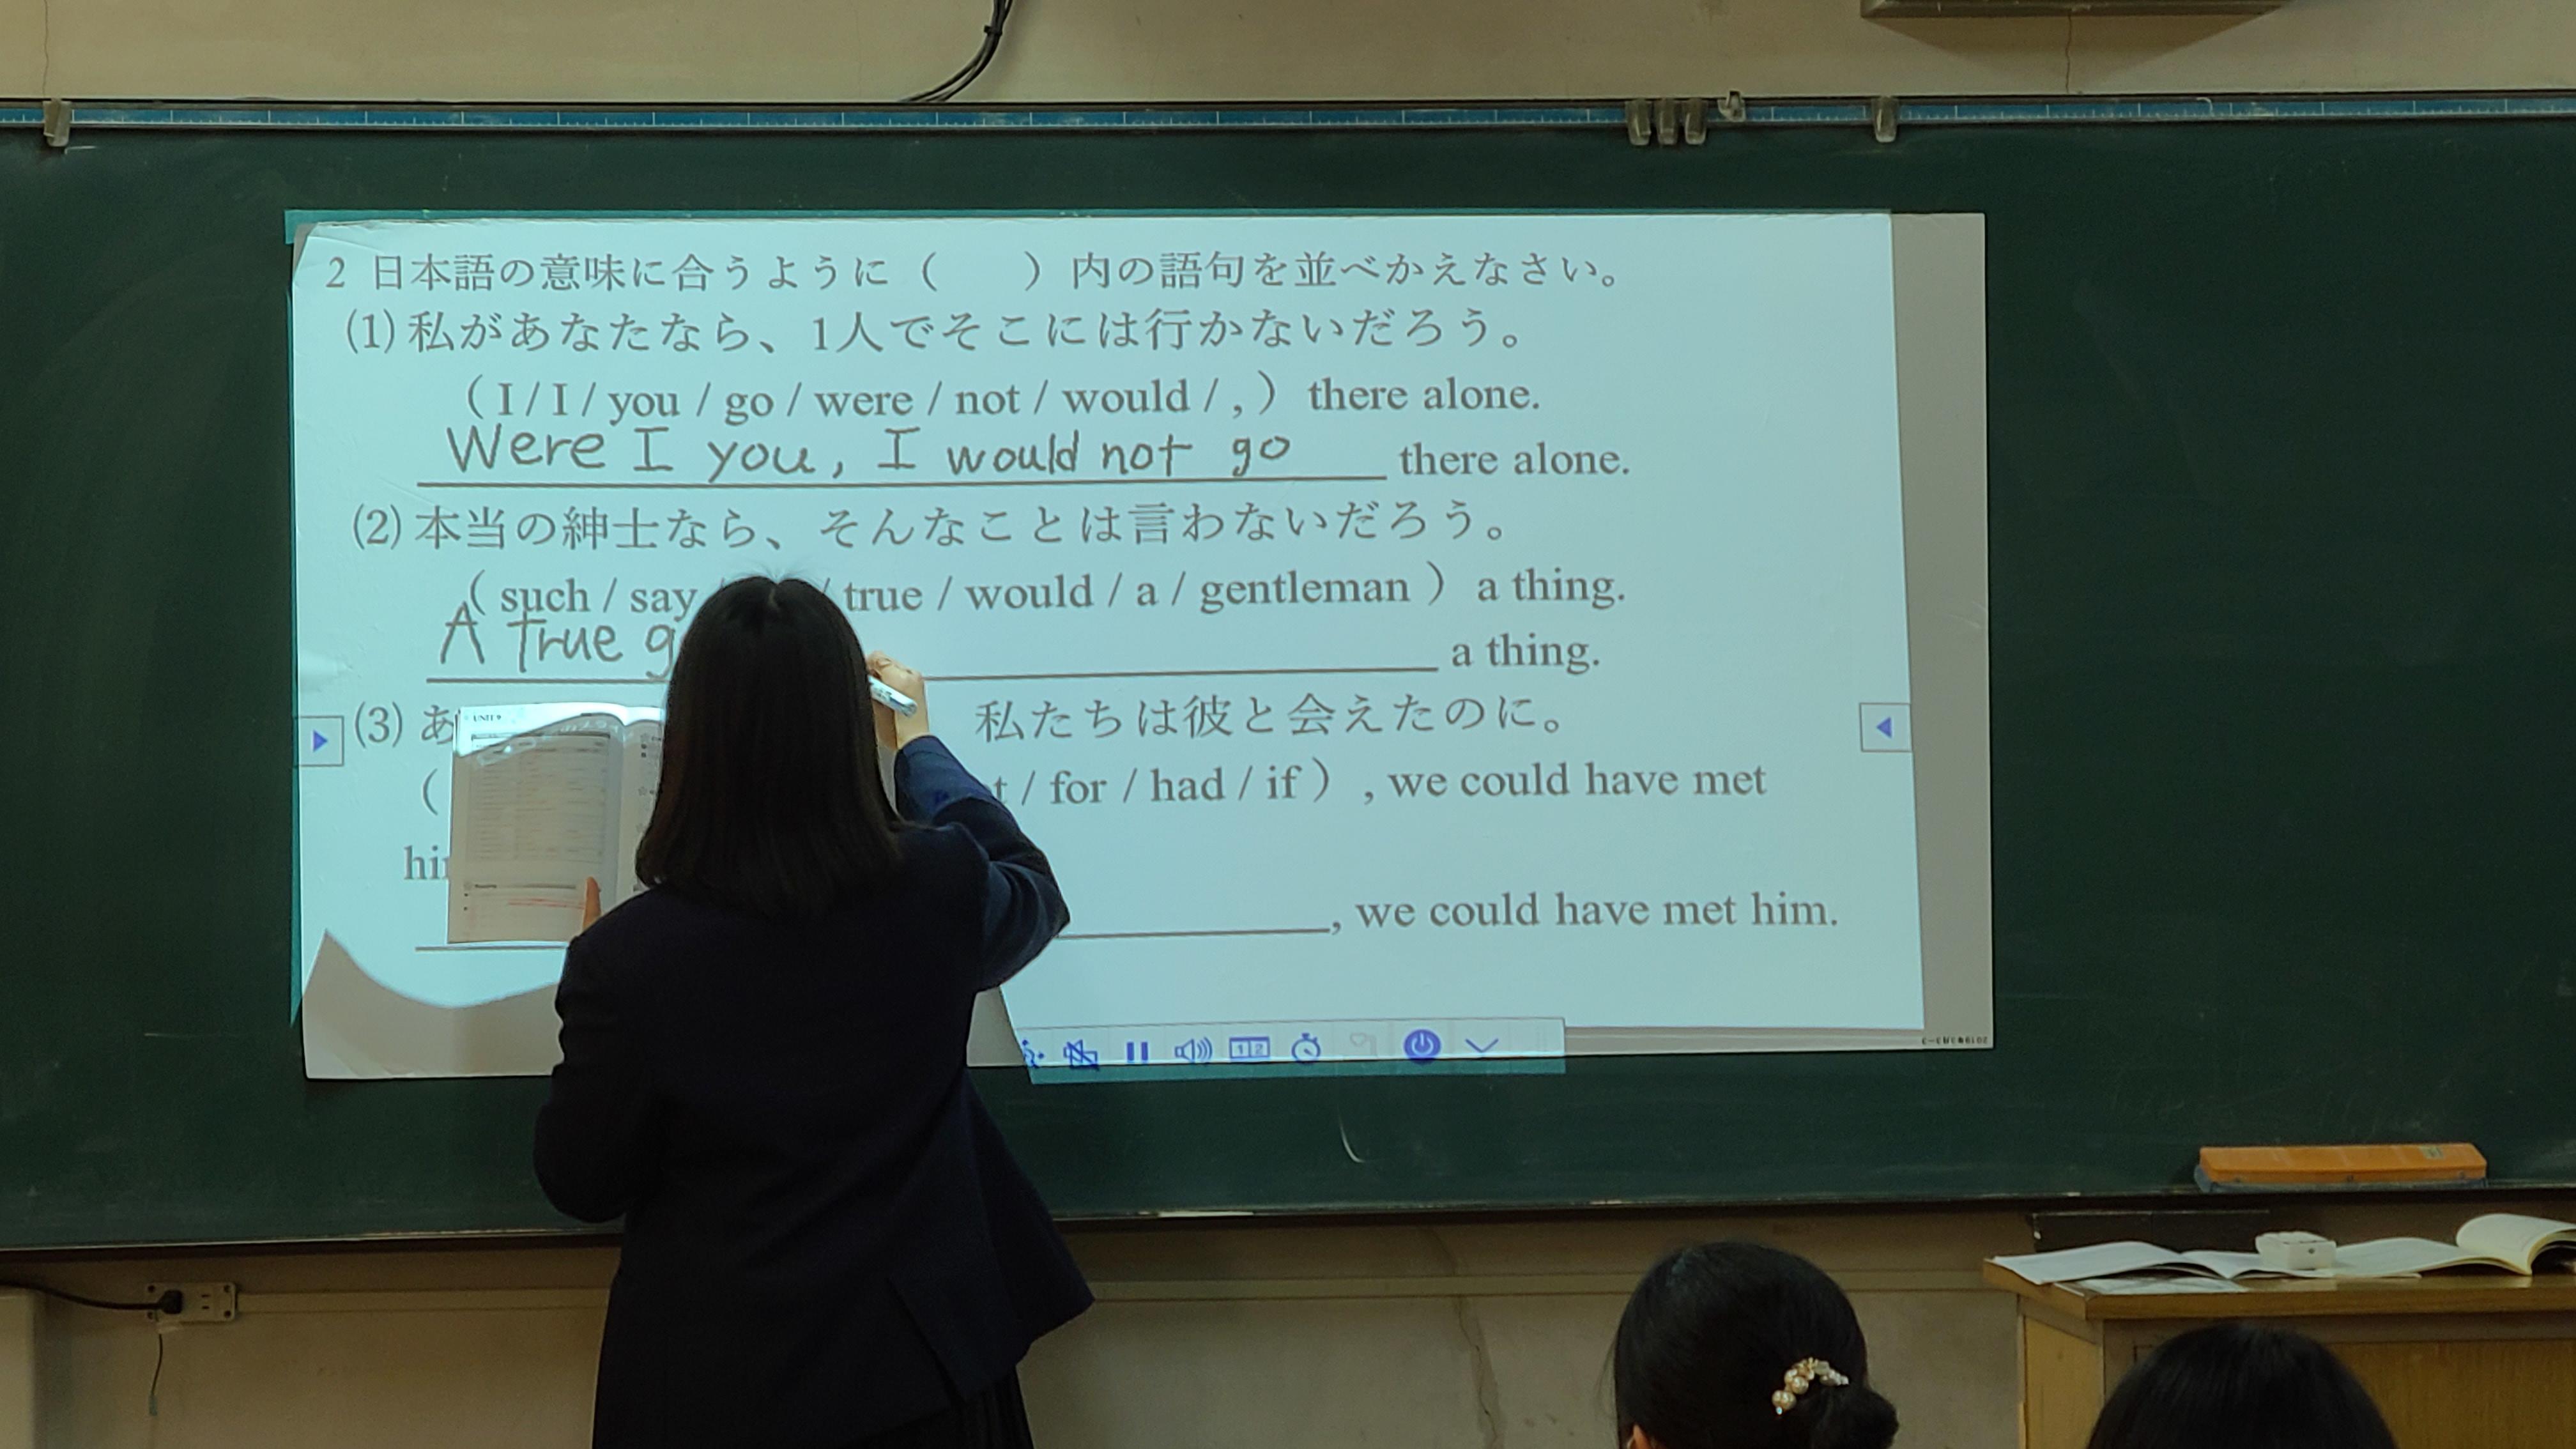 2 日本語の意味に合うように（　　）内の語句を並べかえなさい。
(1) 私があなたなら、1人でそこには行かないだろう。
（ I / I / you / go / were / not / would / , ） there alone.
Were I you, I would not go there alone.
(2) 本当の紳士なら、そんなことは言わないだろう。
（ such / say / true / would / a / gentleman ） a thing.
A true a thing.
(3) あ 私たちは彼と会えたのに。
UNIT 9
（ / for / had / if ） , we could have met
, we could have met him.
1 2